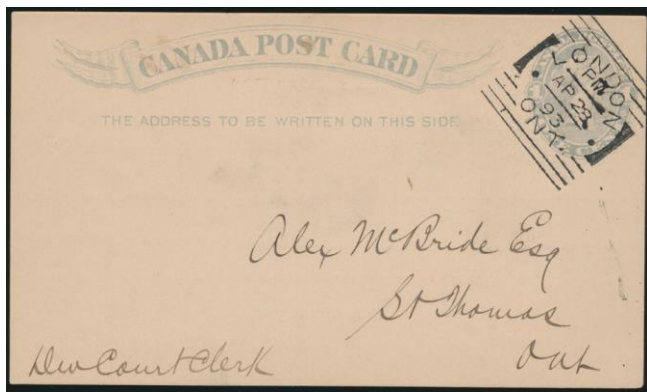 CANADA POST CARD
THE ADDRESS TO BE WRITTEN ON THIS SIDE
LONDON
PM
AP 23
93
ONT.
Alex McBride Esq
St Thomas
Ont
Div Court Clerk